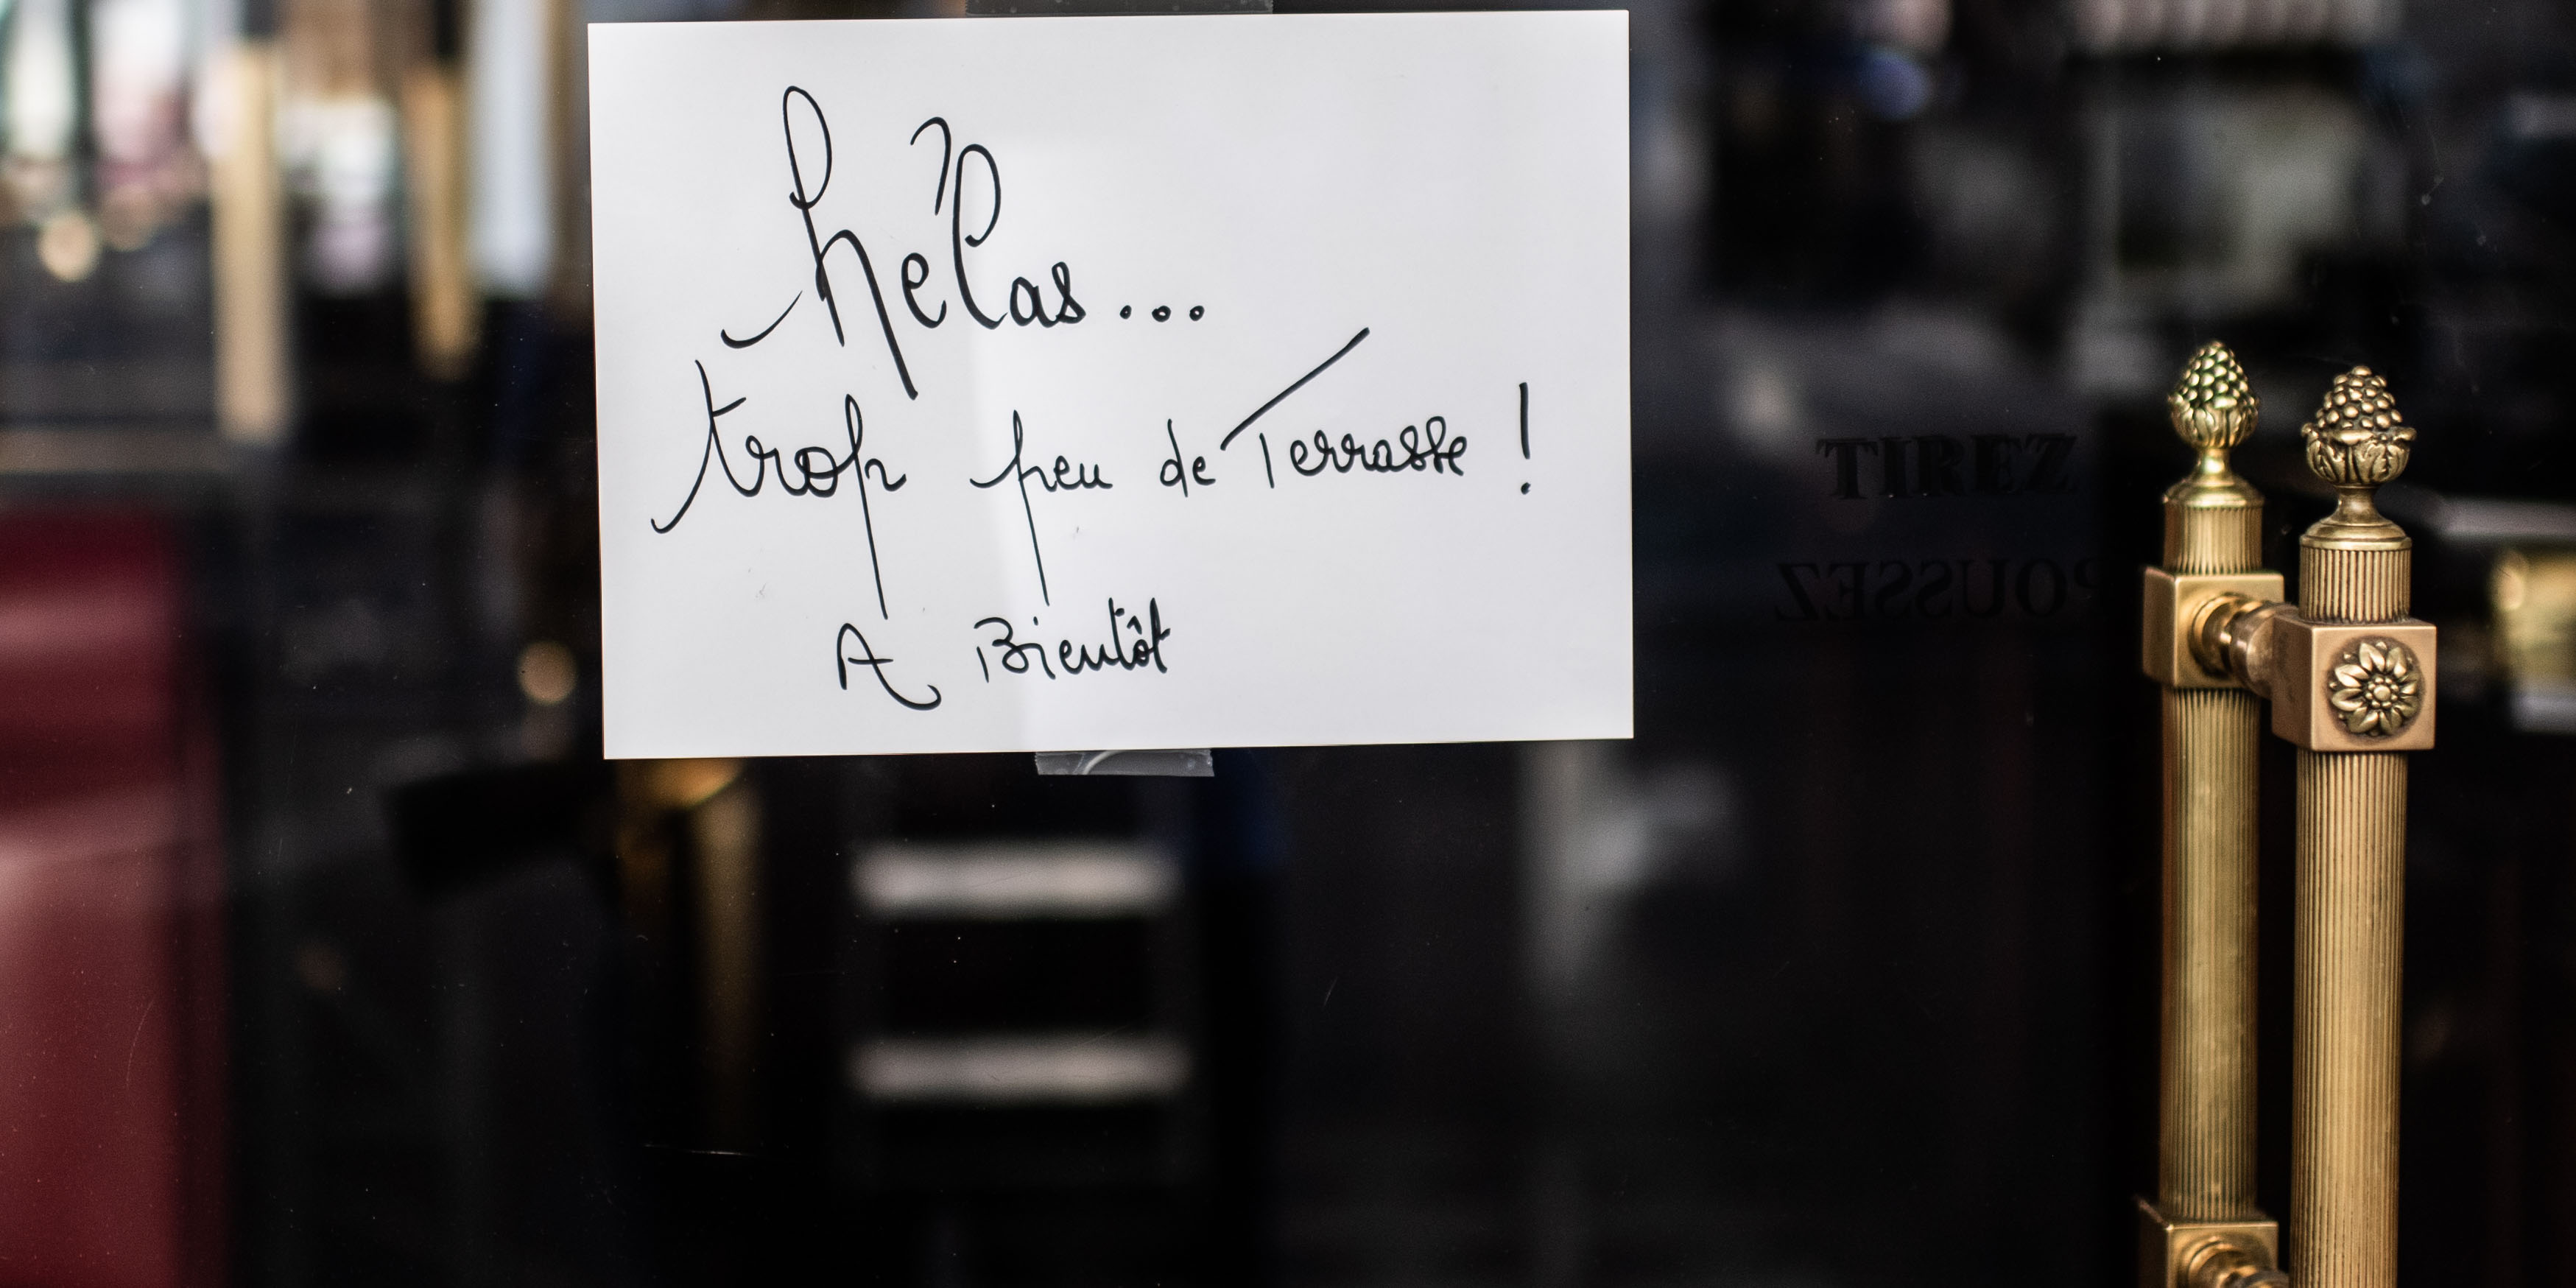 hélas...
trop peu de Terrasse !
A Bientôt
TIREZ
POUSSEZ